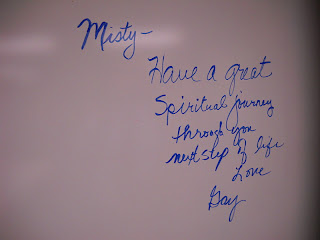 Misty-
Have a great
Spiritual journey
through you
next step of life
Love
Gay